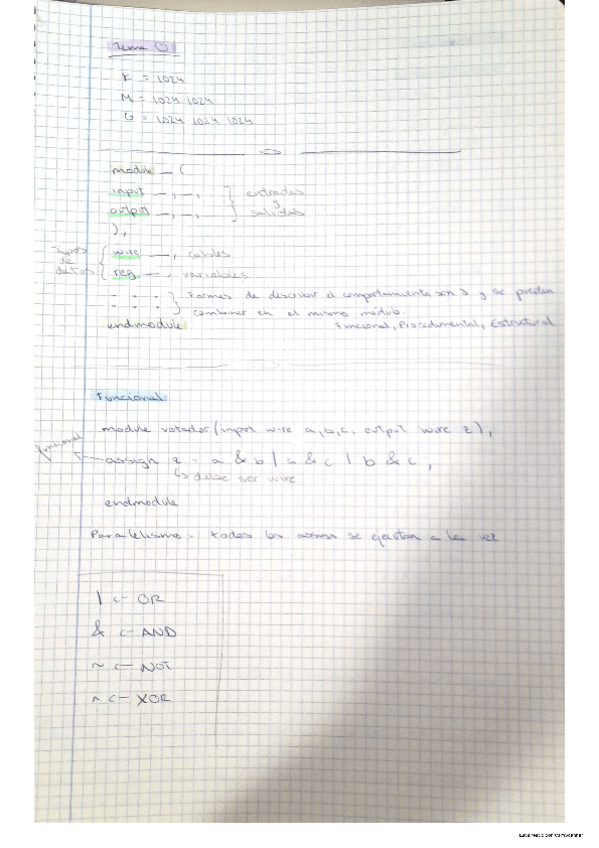 Tema 0
K = 1024
M = 1024 1024
G = 1024 1024 1024
module _ (
input _, _, } entradas
y
output _, _, } salidas
);
Tipos de datos { wire _, cables
reg _, variables
: : : } Formas de describir el comportamiento son 3 y se pueden
combinar en el mismo módulo.
endmodule Funcional, Procedimental, Estructural
Funcional
module votador (input wire a, b, c, output wire z);
funcional ← assign z = a & b | a & c | b & c;
↳ debe ser wire
endmodule
Paralelismo. todos los assign se ejecutan a la vez
| ← OR
& ← AND
~ ← NOT
^ ← XOR